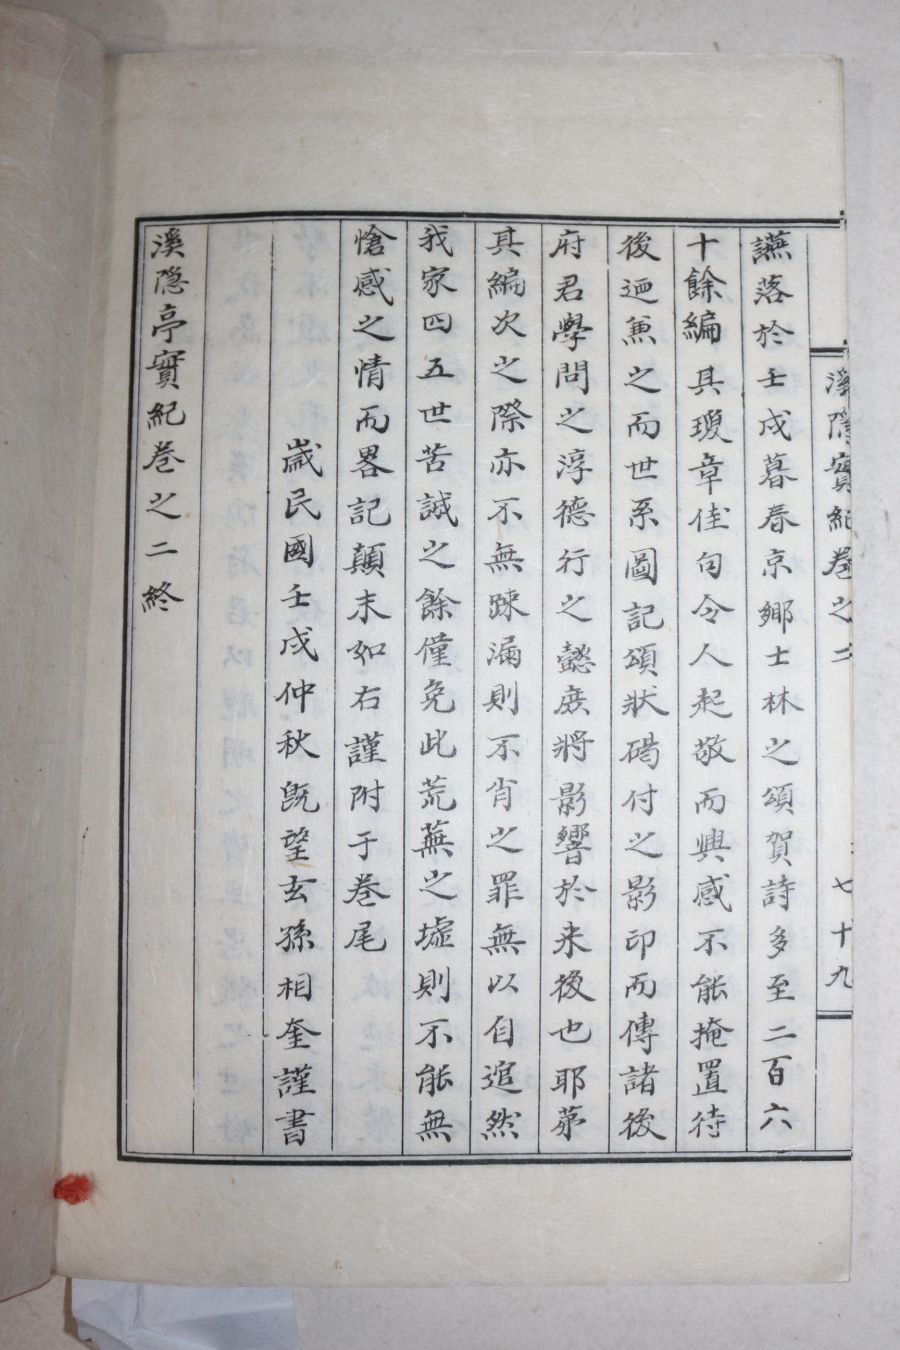 溪隱實紀卷之二
七十九
讌落於壬戌暮春京鄉士林之頌賀詩多至二百六
十餘編其瓊章佳句令人起敬而興感不能掩置待
後廼兼之而世系圖記頌狀碣付之影印而傳諸後
府君學問之淳德行之懿庶將影響於来後也耶苐
其編次之際亦不無踈漏則不肖之罪無以自追然
我家四五世苦誠之餘僅免此荒蕪之墟則不能無
愴感之情而畧記顛末如右謹附于卷尾
歲民國壬戌仲秋旣望玄孫相奎謹書
溪隱亭實紀卷之二終